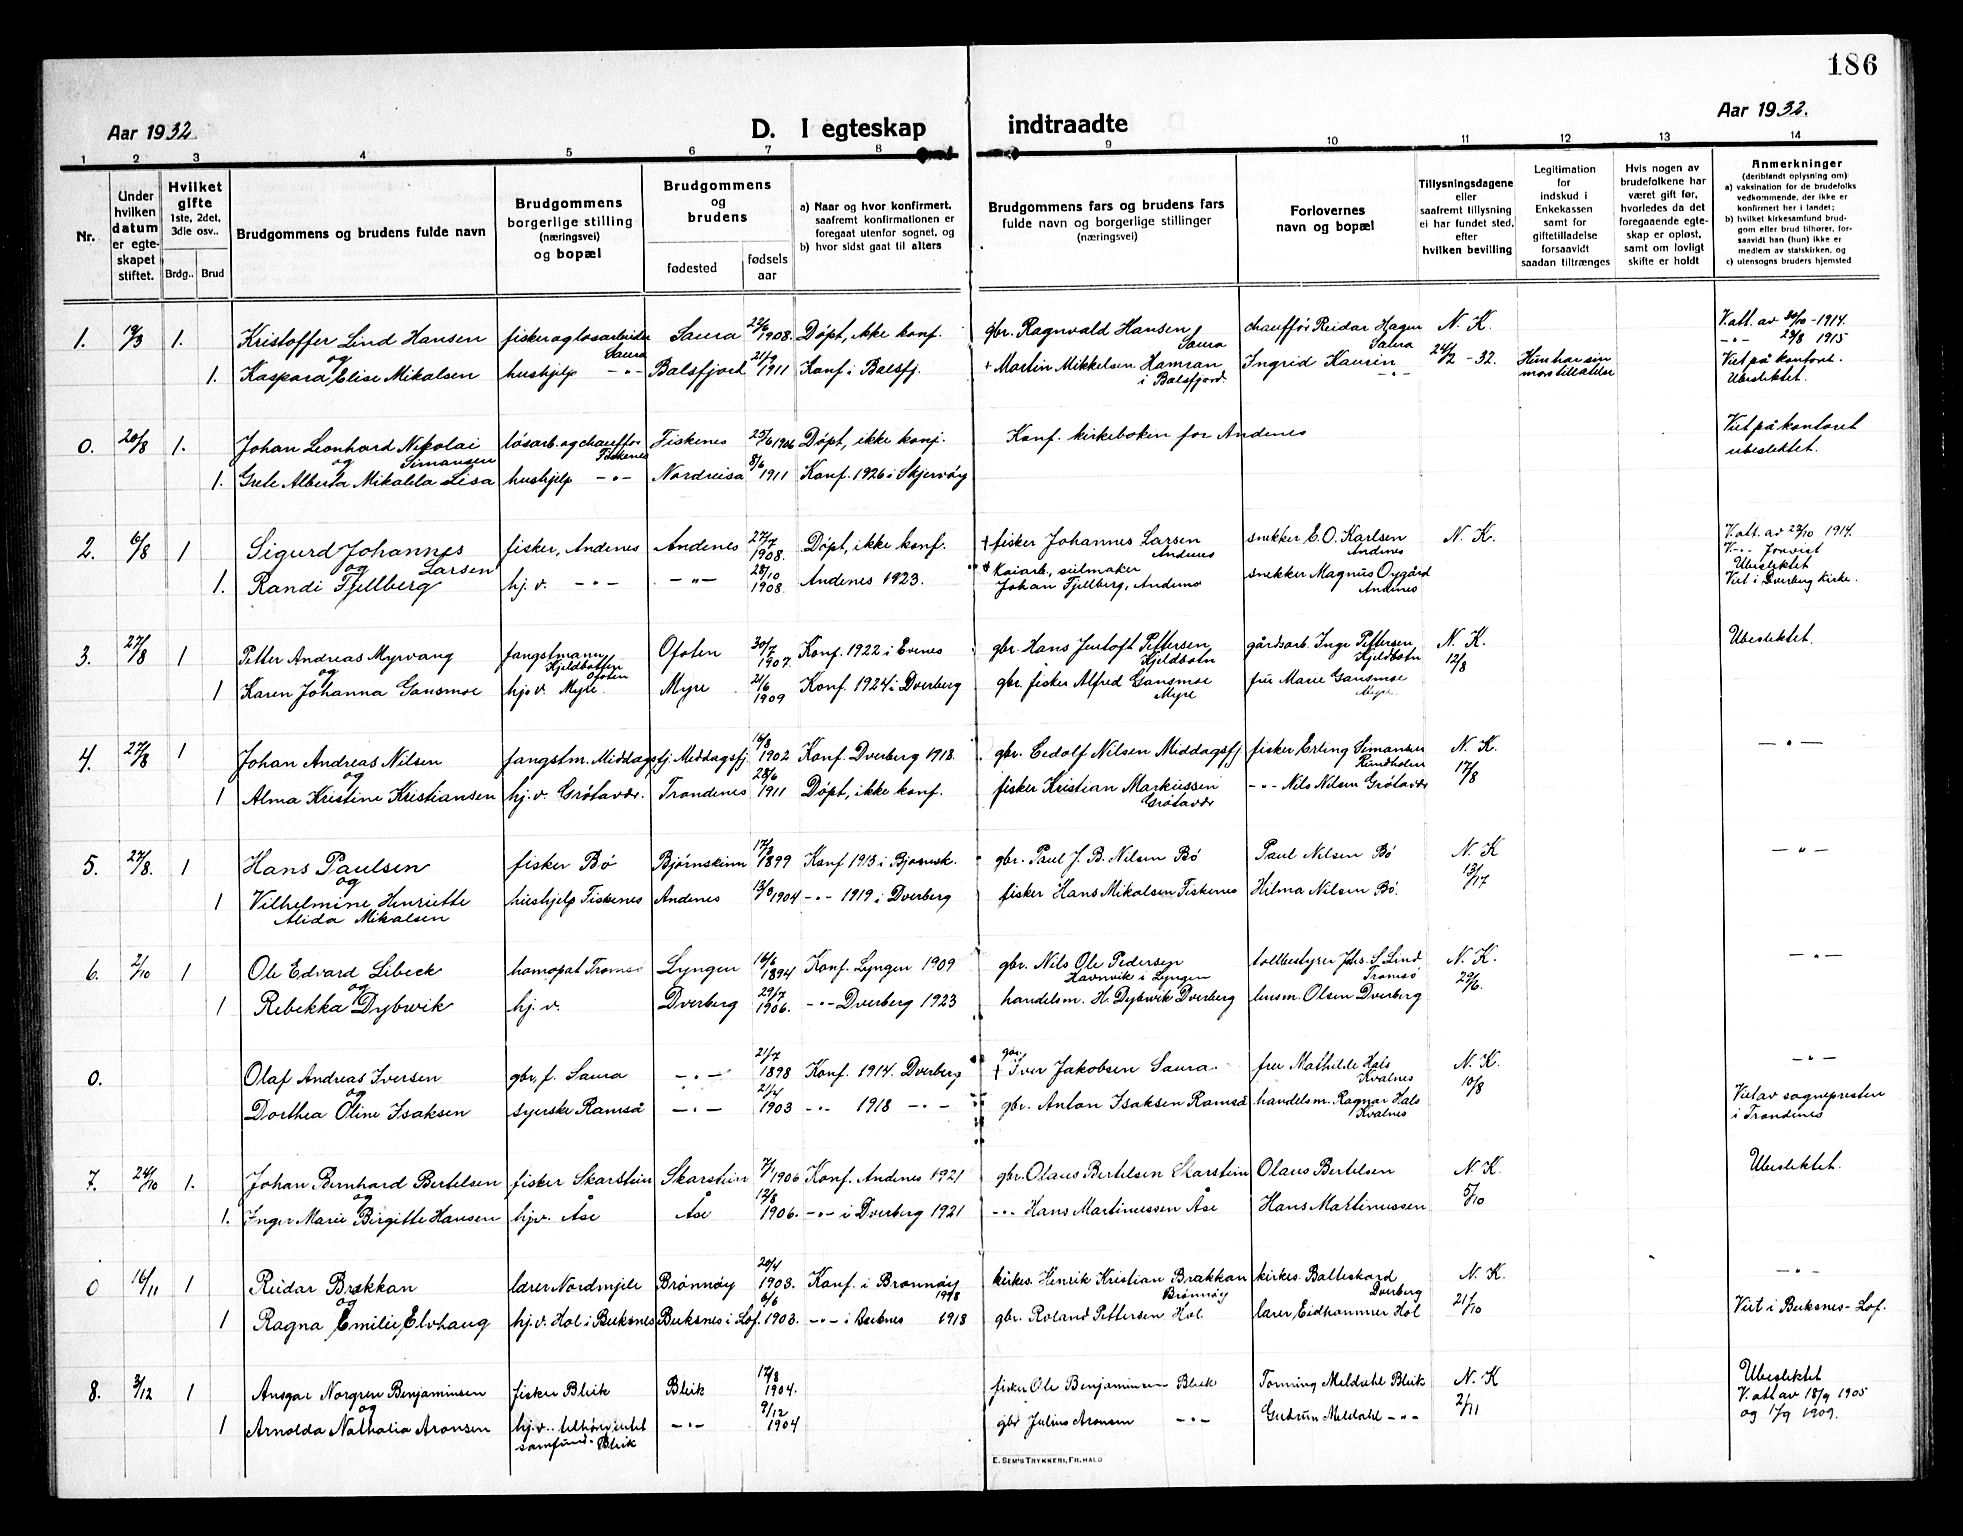 186
Aar 1932
D. I egteskap indtraadte
Aar 1932.
1 2 3 4 5 6 7 8 9 10 11 12 13 14
Nr.
Under hvilken datum er egteskapet stiftet.
Hvilket gifte 1ste, 2det, 3dle osv..
Brdg.. Brud
Brudgommens og brudens fulde navn
Brudgommens borgerlige stilling (næringsvei) og bopæl
Brudgommens og brudens
fødested
fødsels aar
a) Naar og hvor konfirmert, saafremt konfirmationen er foregaat utenfor sognet, og
b) hvor sidst gaat til alters
Brudgommens fars og brudens fars fulde navn og borgerlige stillinger (næringsvei)
Forlovernes navn og bopæl
Tillysningsdagene eller saafremt tillysning ei har fundet sted, efter hvilken bevilling
Legitimation for indskud i Enkekassen samt for giftetilladelse forsaavidt saadan tiltrænges
Hvis nogen av brudefolkene har været gift før, hvorledes da det foregaaende egteskap er opløst, samt om lovligt skifte er holdt
Anmerkninger (deriblandt oplysning om):
a) vaksination for de brudefolks vedkommende, der ikke er konfirmert her i landet;
b) hvilket kirkesamfund brudgom eller brud tilhører, forsaavidt han (hun) ikke er medlem av statskirken, og
c) utensogns bruders hjemsted
1. 19/3 1. Kristoffer Lind Hansen fisker og løsarbeider Saura Saura 22/6 1908. Døpt, ikke konf. gbr. Ragnvald Hansen Saura chauffør Reidar Hagen Saura N. K. V. att. av 20/10 - 1914.
og -"- 29/8 1915
1. Kaspara Elise Mikalsen hushjelp -"- Balsfjord 21/9 1911 Konf. i Balsfj. + Martin Mikkelsen Hamran i Balsfjord. Ingrid Hansen -"- 24/2 - 32. Hun har sin mors tillatelse Viet på kontoret. Ubeslektet.
0. 20/8 1. Johan Leonhard Nikolai Simansen løsarb. og chauffør Fiskenes Fiskenes 25/6 1906 Døpt, ikke konf. Konf. kirkeboken for Andenes Viet på kontoret ubeslektet.
og
1. Grete Alberta Mikalela Lisa hushjelp -"- Nordreisa 8/6 1911 Konf. 1926 i Skjervøy
2. 6/8 1 Sigurd Johannes Larsen fisker, Andenes Andenes 27/7 1908. Døpt, ikke konf. + fisker Johannes Larsen Andenes snekker E. O. Karlsen Andenes N. K. V. att. av 22/10 1914.
og
1. Randi Fjellberg hj. v. -"- -"- 28/10 1908. Andenes 1923. Kaiarb., seilmaker Johan Fjellberg, Andenes snekker Magnus Oygård Andenes Ubeslektet Viet i Dverberg Kirke.
3. 27/8 1 Petter Andreas Myrvang fangstmann Kjeldbotten Ofoten Ofoten 30/7 1907. Konf. 1922 i Evenes gbr. Hans Jentoft Pettersen Kjeldbotn gårdsarb. Inge Pettersen Kjeldbotn N. K. Ubeslektet.
og
1 Karen Johanna Gansmoe hj. v. Myre. Myre 21/6 1909 Konf. 1924 i Dverberg gbr. fisker Alfred Gansmoe Myre fru Marie Gansmoe Myre 12/8
4. 27/8 1 Johan Andreas Nilsen fangstm. Middagsfj. Middagsfj. 16/8 1902 Konf. Dverberg 1918. gbr. Eidolf Nilsen Middagsfj. fisker Erling Simansen N. K. -"-
og
1 Alma Kristine Kristiansen hj. v. Grøtavær. Trondenes 28/6 1911 Døpt, ikke konf. fisker Kristian Markussen Grøtavær -"- Nils Nilsen Grøtavær 17/8
5. 27/8. 1 Hans Paulsen fisker Bø Bjørnskinn 17/2 1899 Konf. 1913 i Bjørnsk. gbr. Paul J. B. Nilsen Bø Paul Nilsen Bø N. K -"-
og
1 Vilhelmine Henriette Alida Mikalsen hushjelp Fiskenes Andenes 13/9 1904 -"- 1919 i Dverberg fisker Hans Mikalsen Fiskenes Hilma Nilsen Bø. 13/17
6. 2/10 1 Ole Edvard Libeck homøpat Tromsø Lyngen 16/6 1894 Konf. Lyngen 1909 gbr. Nils Ole Pedersen Havnnvik i Lyngen tollbestyrer Johs. S. Lind Tromsø N. K. -"-
og
1 Rebekka Dybwik hj. v. Dverberg 29/7 1906. -"- Dverberg 1923 handelsm. H. Dybwik Dverberg lensm. Olsen Dverberg 29/6.
0. Olaf Andreas Iversen gbr., f. Saura -"- 21/7 1898 Konf. 1914. Dverberg gbr. + Iver Jakobsen Saura. fru Mathilde Hals Kvalnes N. K. -"-
og
Dorthea Oline Isaksen syerske Ramså -"- 21/4 1903 -"- 1918 -"- gbr. Anton Isaksen Ramså handelsm. Ragnar Hals Kvalnes 10/8 Viet av sognepresten i Trondenes
7. 24/10 1. Johan Bernhard Bertelsen fisker Skarstein Skarstein 7/1 1906 Konf. Andenes 1921 gbr. Olaus Bertelsen Skarstein Olaus Bertelsen N. K. Ubeslektet.
og
1. Inger Marie Birgitte Hansen hj.v. Åse Åse 12/8 1906. -"- i Dverberg 1921 -"- Hans Martinussen Åse Hans Martinussen 5/10
0 16/11 1 Reidar Brækkan lærer Nordmjele Brønnøy 20/4 1903. Konf. i Brønnøy 1918 kirkes. Henrik Kristian Brækkan Brønnøy kirkes. Balteskard Dverberg N. K. -"-
og
1 Ragna Emilie Elvhaug hj. v. Hol i Buksnes Buksnes i Lof. 6/6 1903. -"- i Buknes 1918 gbr. Roland Pettersen Hol lærer Eidhammer Hol 21/10 Viet i Buksnes-Lof.
8. 3/12 1 Ansgar Norgren Benjaminsen fisker Bleik Bleik 17/8 1904. fisker Ole Benjaminsen Bleik Tonning Meldahl Bleik N. K Ubeslektet
og V. att av 18/9 1905
1 Arnolda Nathalia Aronsen hj. v. -"- 9/12 1904 gbr Julius Aronsen -"- Gudrun Meldahl -"- 2/11 og 1/9 1909.
samfund. Bleik
E. SEM'S TRYKKERI, FR. HALD